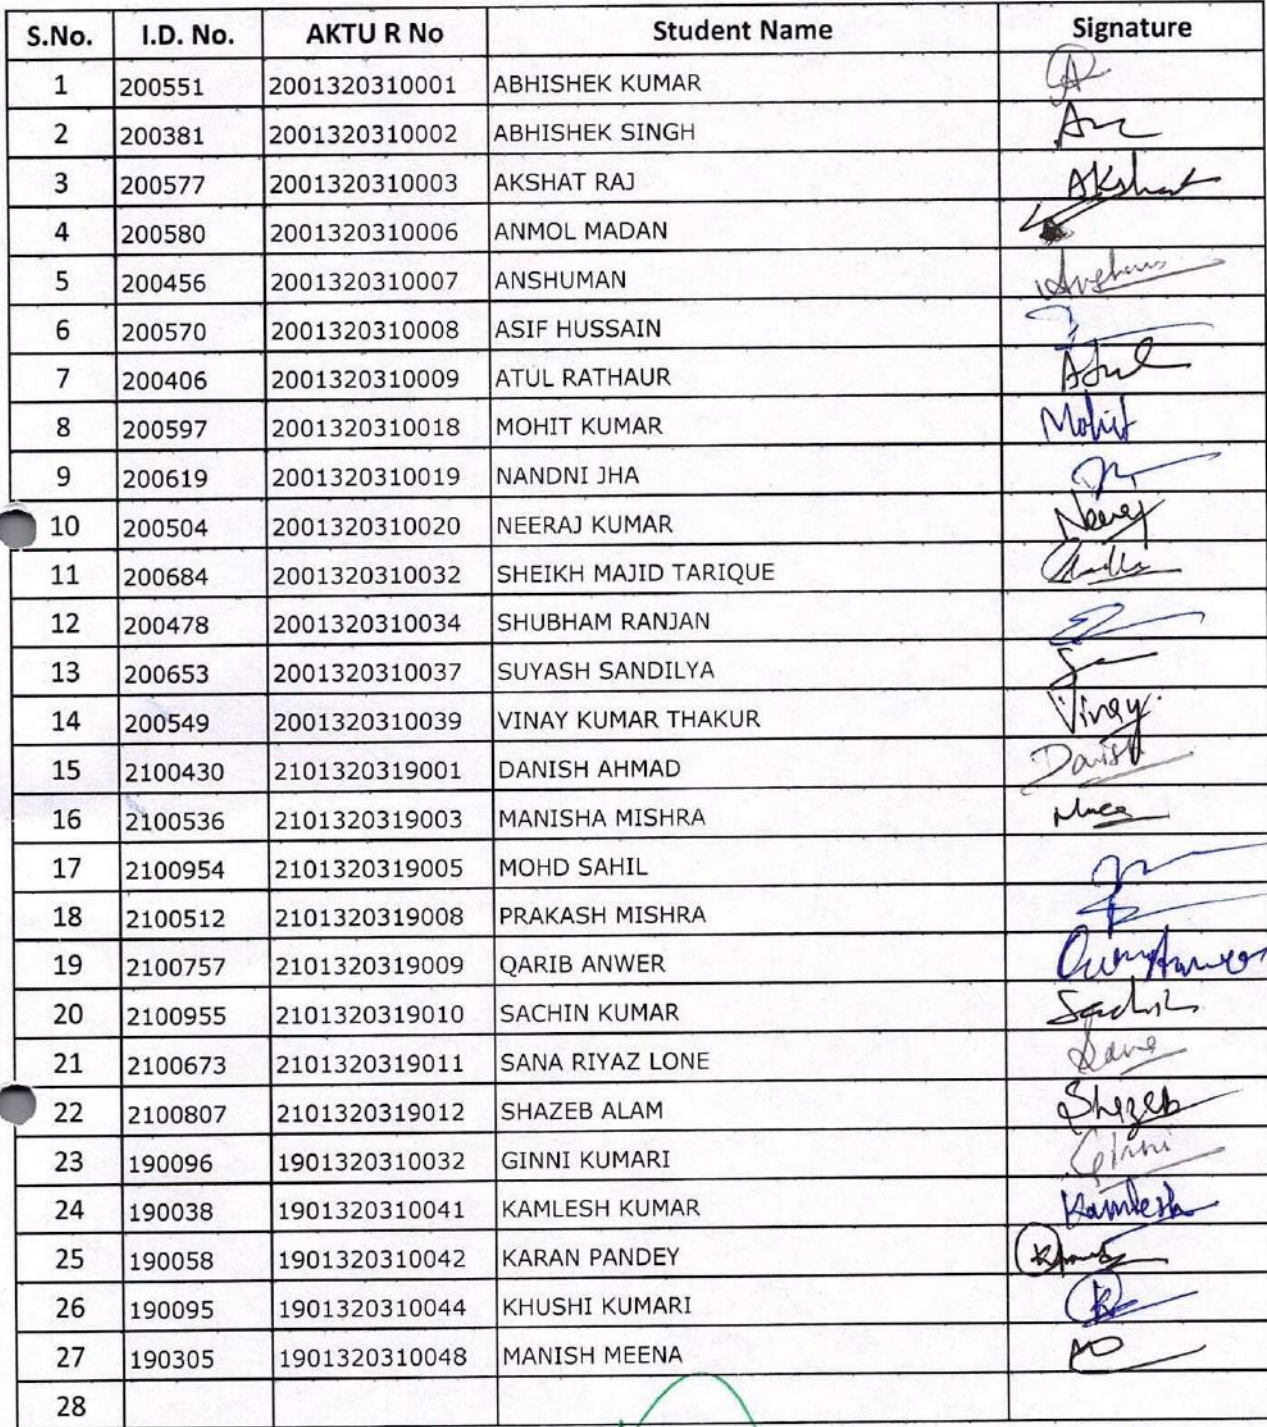 S.No. I.D. No. AKTU R No Student Name Signature
1 200551 2001320310001 ABHISHEK KUMAR
2 200381 2001320310002 ABHISHEK SINGH
3 200577 2001320310003 AKSHAT RAJ Akshat
4 200580 2001320310006 ANMOL MADAN
5 200456 2001320310007 ANSHUMAN
6 200570 2001320310008 ASIF HUSSAIN
7 200406 2001320310009 ATUL RATHAUR Atul
8 200597 2001320310018 MOHIT KUMAR Mohit
9 200619 2001320310019 NANDNI JHA
10 200504 2001320310020 NEERAJ KUMAR Neeraj
11 200684 2001320310032 SHEIKH MAJID TARIQUE
12 200478 2001320310034 SHUBHAM RANJAN
13 200653 2001320310037 SUYASH SANDILYA
14 200549 2001320310039 VINAY KUMAR THAKUR Vinay
15 2100430 2101320319001 DANISH AHMAD Danish
16 2100536 2101320319003 MANISHA MISHRA
17 2100954 2101320319005 MOHD SAHIL
18 2100512 2101320319008 PRAKASH MISHRA
19 2100757 2101320319009 QARIB ANWER
20 2100955 2101320319010 SACHIN KUMAR Sachin
21 2100673 2101320319011 SANA RIYAZ LONE Sana
22 2100807 2101320319012 SHAZEB ALAM Shazeb
23 190096 1901320310032 GINNI KUMARI Ginni
24 190038 1901320310041 KAMLESH KUMAR Kamlesh
25 190058 1901320310042 KARAN PANDEY
26 190095 1901320310044 KHUSHI KUMARI
27 190305 1901320310048 MANISH MEENA
28